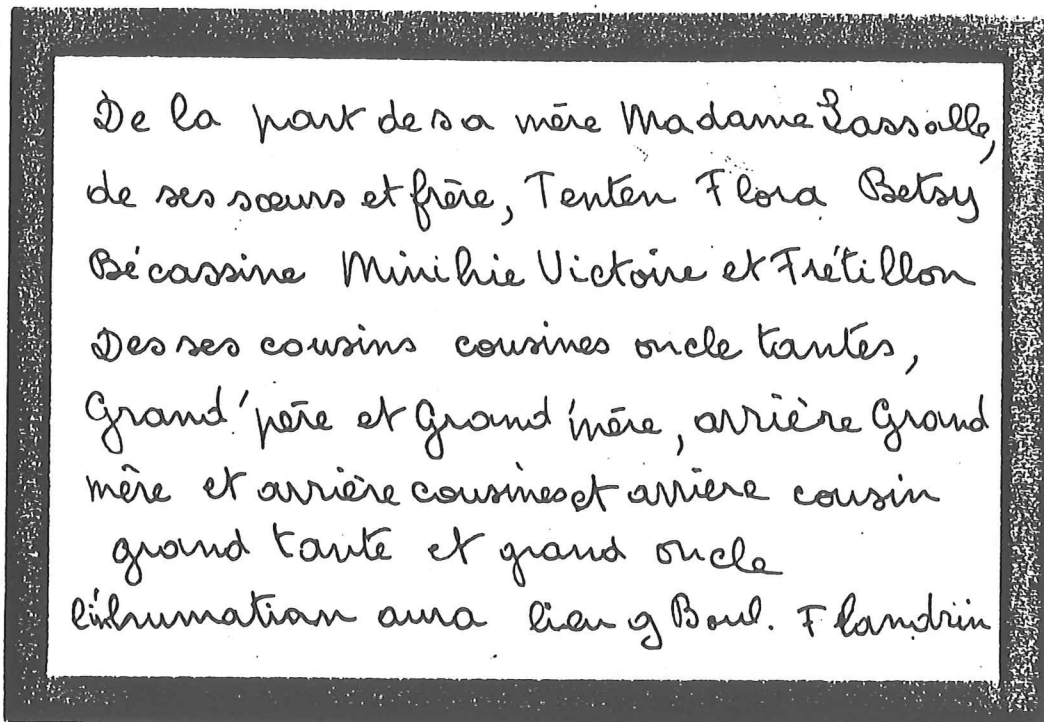 De la part de sa mère Madame Lassalle,
de ses sœurs et frère, Tenten Flora Betsy
Bécassine Minihie Victoire et Frétillon
Des ses cousins cousines oncle tantes,
Grand'père et Grand'mère, arrière Grand
mère et arrière cousines et arriere cousin
grand tante et grand oncle
l'inhumation aura lieu 9 Boul. Flandrin